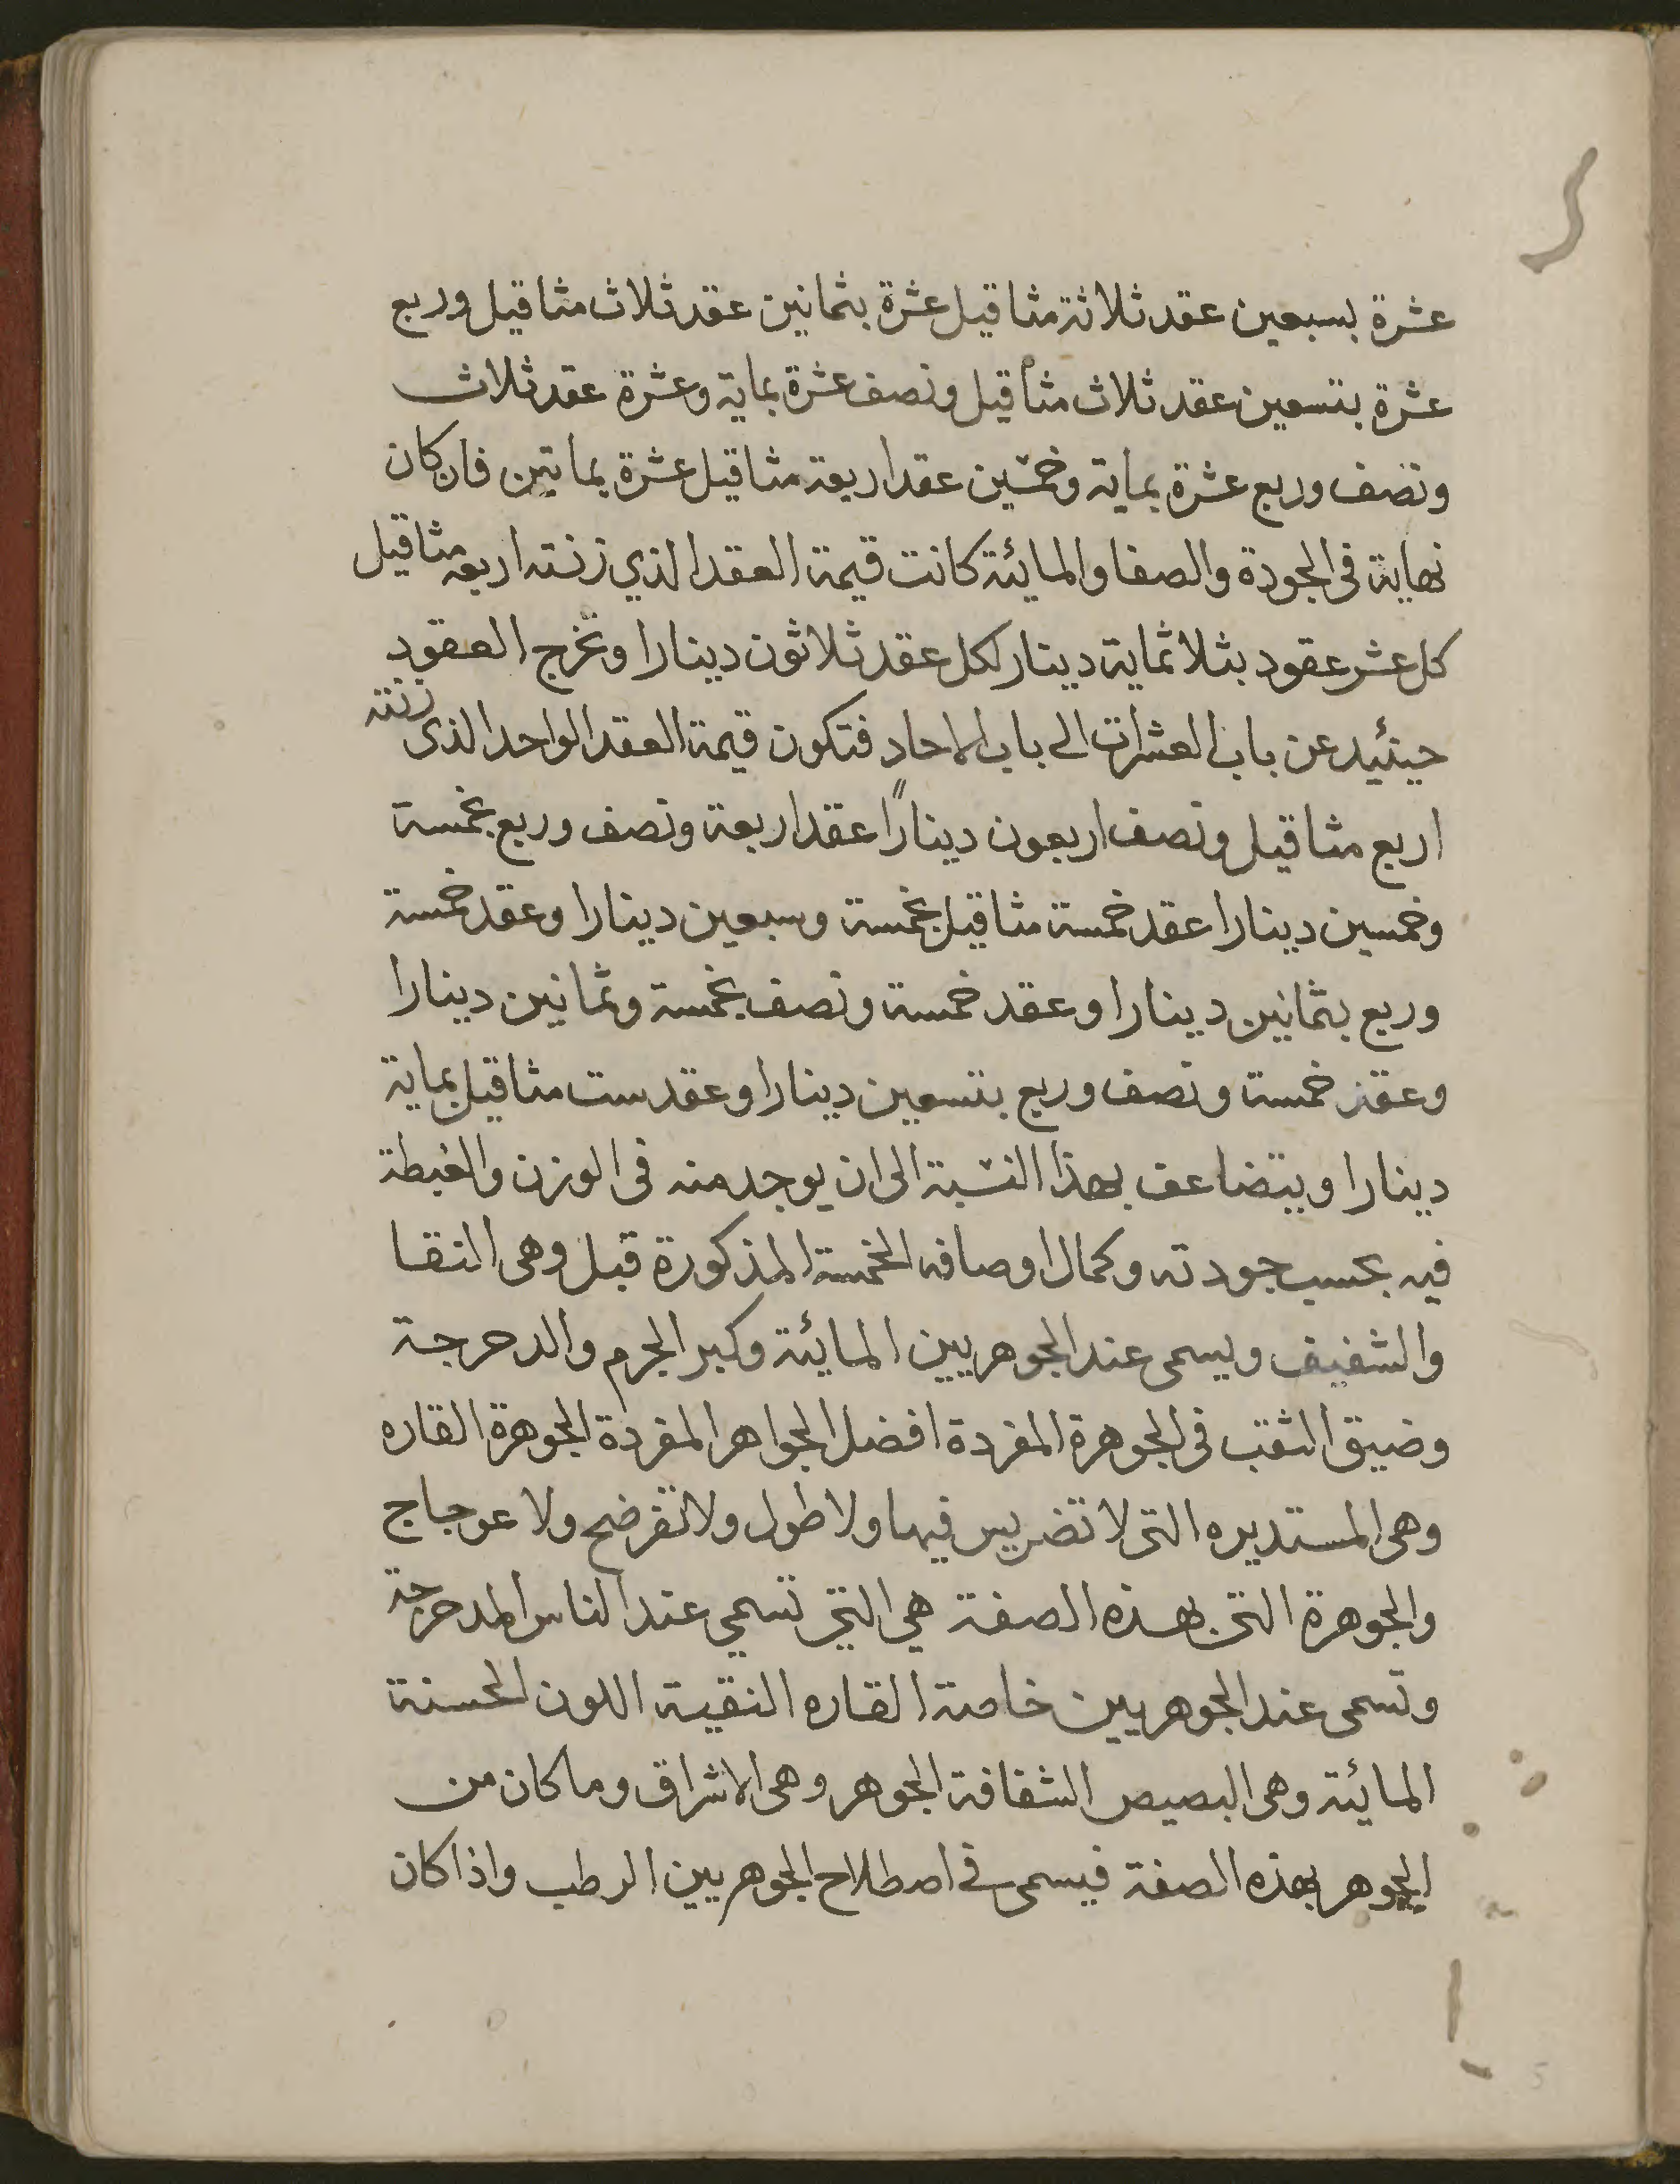 عشرة بسبعين عقد ثلاثة مثاقيل عشرة بثمانين عقد ثلاث مثاقيل وربع
عشرة بتسعين عقد ثلاث مثاقيل ونصف عشرة بماية وعشرة عقد ثلاث
ونصف وربع عشرة بماية وخمسين عقد اربعة مثاقيل عشرة بماتين فان كان
نهاية فى الجودة والصفا والمائية كانت قيمة العقد الذي زنته اربعه مثاقيل
كل عشر عقود بثلاثماية دينار لكل عقد ثلاثون دينارا وتخرج العقود
حينئيد عن باب العشرات الى باب الاحاد فتكون قيمة العقد الواحد الذى زنته
اربع مثاقيل ونصف اربعون دينارًا عقد اربعة ونصف وربع بخمسة
وخمسين دينارا عقد خمسة مثاقيل بخمسة وسبعين دينارا وعقد خمسة
وربع بثمانين دينارا وعقد خمسة ونصف بخمسة وثمانين دينارا
وعقد خمسة ونصف وربع بتسعين دينارا وعقد ست مثاقيل بماية
دينارا ويتضاعف بهذا النسبة الى ان يوجد منه فى الوزن والغبطة
فيه بحسب جودته وكمال اوصافه الخمسة المذكورة قبل وهى النقا
والشفيف ويسمى عند الجوهريين المائية وكبر الجرم والدحرجة
وضيق الثقب فى الجوهرة المفردة افضل الجواهر المفردة الجوهرة القاره
وهى المستديره التى لا تضريس فيها ولا طول ولا تفرضح ولا عوجاج
والجوهرة التى بهذه الصفة هي التى تسمي عند الناس المدحرجة
وتسمى عند الجوهريين خامة القاره النقية اللون الحسنة
المائية وهى البصيص الشفافة الجوهر وهى الاشراق وما كان من
الجوهر بهذه الصفة فيسمى فى اصطلاح الجوهريين الرطب واذا كان